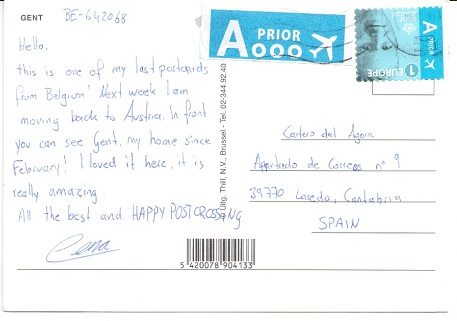 GENT
BE-642068
Hello,
this is one of my last postcards
from Belgium! Next week I am
moving back to Austria. In front
you can see Gent, my home since
February! I loved it here, it is
really amazing.
All the best and HAPPY POSTCROSSING
A PRIOR
A PRIOR
1 EUROPE
Uitg. Thill, N.V., Brussel - Tel. 02-344.92.40
Cartero del Agora
Apartado de Correos nº 9
39770 Laredo, Cantabria
SPAIN
5 420078 904133